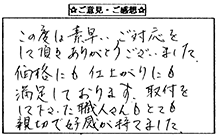 ☆ご意見・ご感想☆
この度は素早いご対応を
して頂きありがとうございました。
価格にも仕上がりにも
満足しております。取付を
して下さった職人さんもとても
親切で好感が持てました。